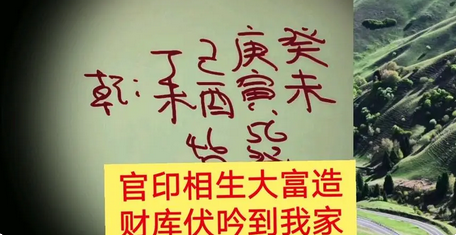 丁己庚癸
乾：未酉寅未
56
官印相生大富造
财库伏吟到我家